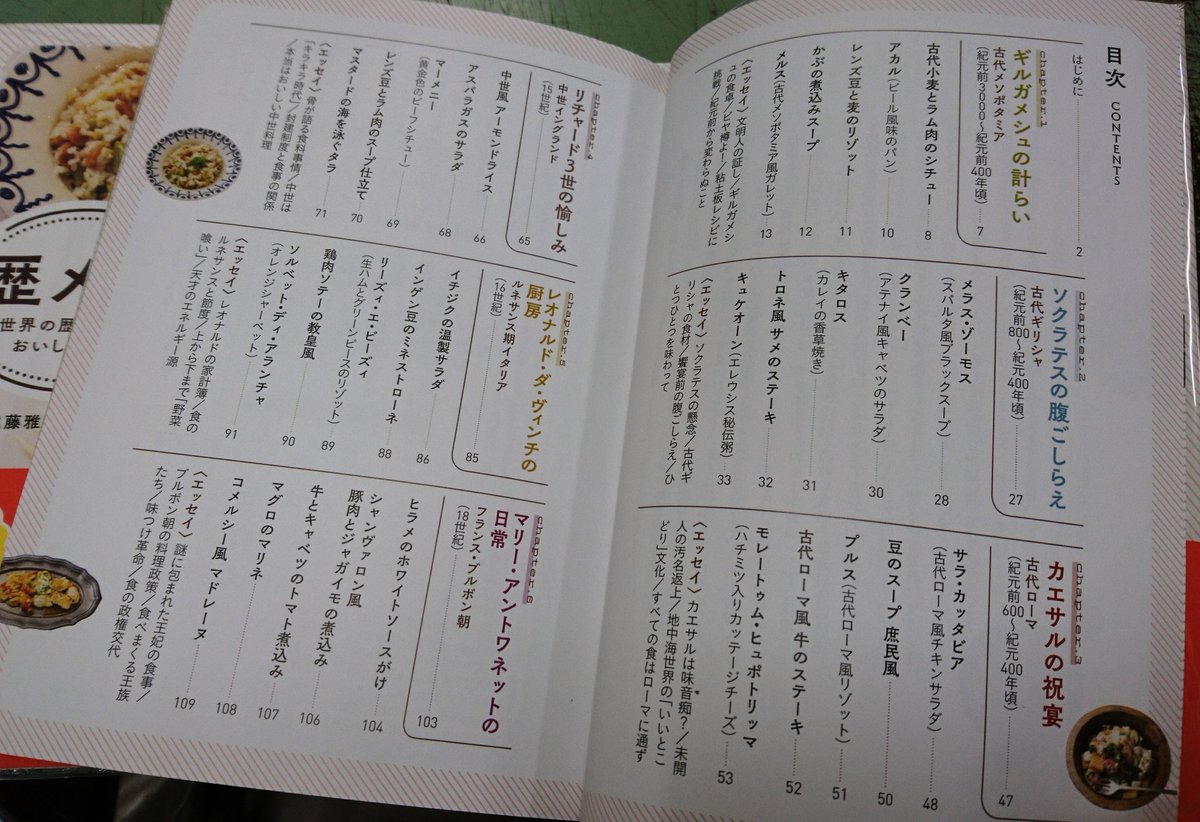 目次 CONTENTS
はじめに 2
chapter.1
ギルガメシュの計らい
古代メソポタミア
(紀元前3000〜紀元前400年頃) 7
古代小麦とラム肉のシチュー 8
アカル(ビール風味のパン) 10
レンズ豆と麦のリゾット 11
かぶの煮込みスープ 12
メルス(古代メソポタミア風ガレット) 13
〈エッセイ〉文明人の証し/ギルガメシ
ュの食卓/ビヤ樽よ!/粘土板レシピに
挑戦/紀元前から変わらぬこと
chapter.2
ソクラテスの腹ごしらえ
古代ギリシャ
(紀元前800〜紀元400年頃) 27
メラス・ゾーモス
(スパルタ風ブラックスープ) 28
クランベー
(アテナイ風キャベツのサラダ) 30
キタロス
(カレイの香草焼き) 31
トロネ風 サメのステーキ 32
キュケオーン(エレウシス秘伝粥) 33
〈エッセイ〉ソクラテスの懸念/古代ギ
リシャの食材/饗宴前の腹ごしらえ/ひ
とつひとつを味わって
chapter.3
カエサルの祝宴
古代ローマ
(紀元前600〜紀元400年頃) 47
サラ・カッタビア
(古代ローマ風チキンサラダ) 48
豆のスープ 庶民風 50
プルス(古代ローマ風リゾット) 51
古代ローマ風 牛のステーキ 52
モレートゥム・ヒュポトリッマ
(ハチミツ入りカッテージチーズ) 53
〈エッセイ〉カエサルは味音痴?/未開
人の汚名返上/地中海世界の「いいとこ
どり」文化/すべての食はローマに通ず
chapter.4
リチャード3世の愉しみ
中世イングランド
(15世紀) 65
中世風 アーモンドライス 66
アスパラガスのサラダ 68
マーメニー
(黄金色のビーフシチュー) 69
レンズ豆とラム肉のスープ仕立て 70
マスタードの海を泳ぐタラ 71
〈エッセイ〉骨が語る食料事情/中世は
「キラキラ時代」/封建制度と食事の関係
/本当はおいしい中世料理
chapter.5
レオナルド・ダ・ヴィンチの
厨房
ルネサンス期イタリア
(16世紀) 85
イチジクの温製サラダ 86
インゲン豆のミネストローネ 88
リーズィ・エ・ビーズィ
(生ハムとグリーンピースのリゾット) 89
鶏肉ソテーの教皇風 90
ソルベット・ディ・アランチャ
(オレンジシャーベット) 91
〈エッセイ〉レオナルドの家計簿/食の
ルネサンスと節度/上から下まで「野菜
喰い」/天才のエネルギー源
chapter.6
マリー・アントワネットの
日常
フランス・ブルボン朝
(18世紀) 103
ヒラメのホワイトソースがけ 104
シャンヴァロン風
豚肉とジャガイモの煮込み 106
牛とキャベツのトマト煮込み 107
マグロのマリネ 108
コメルシー風 マドレーヌ 109
〈エッセイ〉謎に包まれた王妃の食事/
ブルボン朝の料理政策/食べまくる王族
たち/味つけ革命/食の政権交代
歴メ
世界の歴
おいし
藤雅